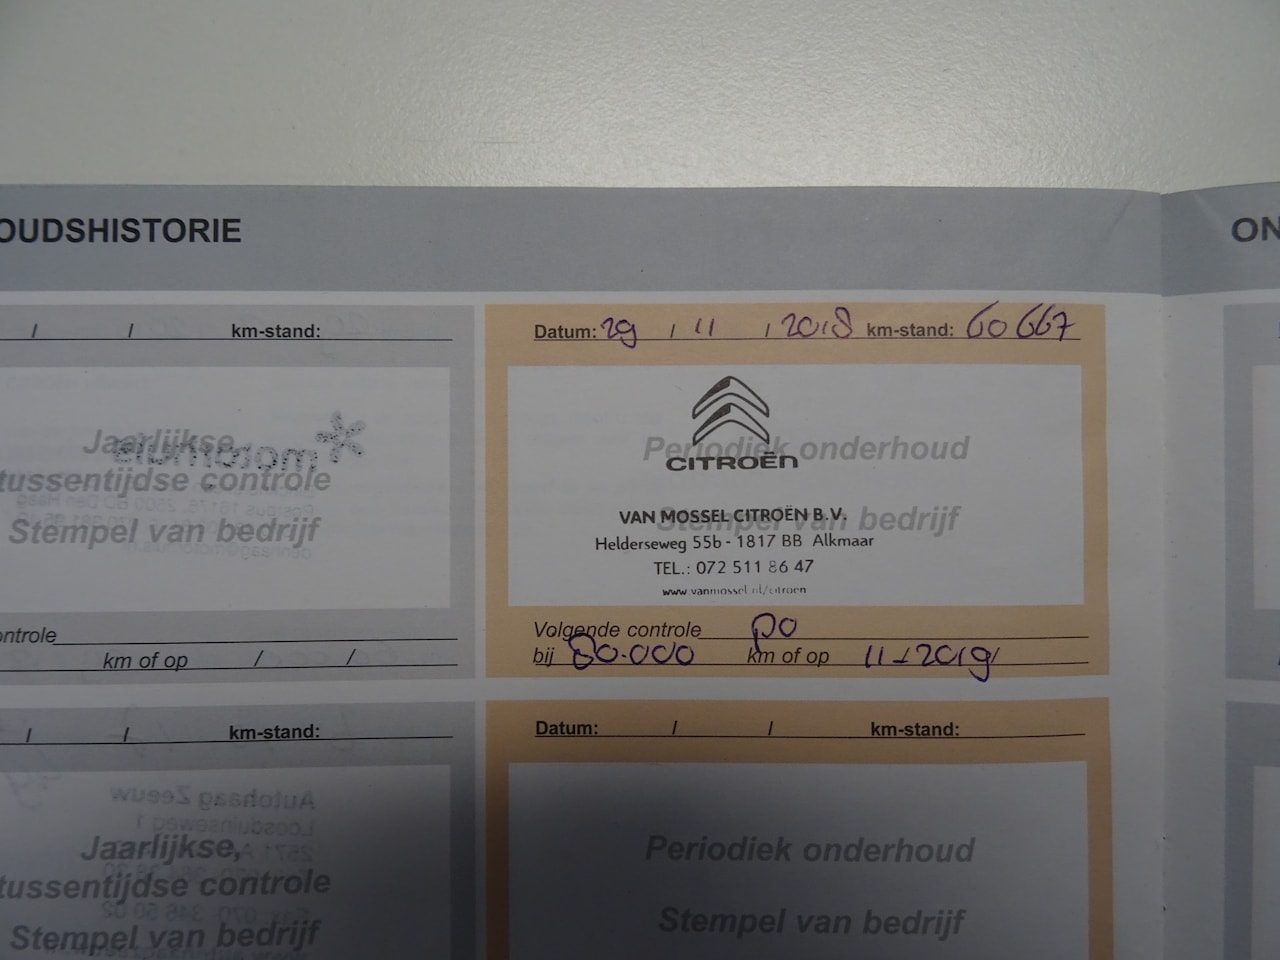 OUDSHISTORIE
ON
/ / km-stand:
Jaarlijkse,
tussentijdse controle
Stempel van bedrijf
ontrole
km of op / /
Datum: 29 / 11 / 2018 km-stand: 60667
Periodiek onderhoud
Stempel van bedrijf
CITROËN
VAN MOSSEL CITROËN B.V.
Helderseweg 55b - 1817 BB Alkmaar
TEL.: 072 511 86 47
www.vanmossel.nl/citroen
Volgende controle po
bij 80.000 km of op 11-2019/
/ / km-stand:
Jaarlijkse,
tussentijdse controle
Stempel van bedrijf
Datum: / / km-stand:
Periodiek onderhoud
Stempel van bedrijf